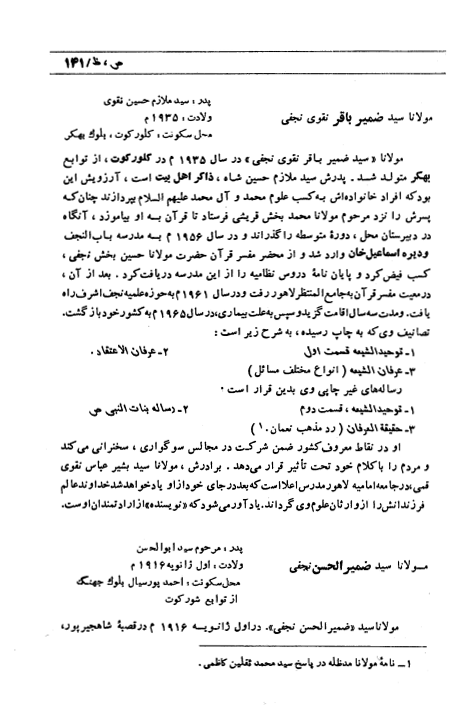 ص ، ظ/۱۴۱
پدر : سید ملازم حسین نقوی
مولانا سید ضمیر باقر نقوی نجفی
ولادت : ۱۹۳۵ م
محل سکونت : کلورکوت، بلوک بهکر
مولانا «سید ضمیر باقر نقوی نجفی» در سال ۱۹۳۵ م در کلورکوت، از توابع
بهکر متولد شد. پدرش سید ملازم حسین شاه، ذاکر اهل بیت است، آرزویش این
بود که افراد خانواده‌اش به کسب علوم محمد و آل محمد علیهم السلام بپردازند چنان که
پسرش را نزد مرحوم مولانا محمد بخش قریشی فرستاد تا قرآن به او بیاموزد، آنگاه
در دبیرستان محل، دورهٔ متوسطه را گذراند و در سال ۱۹۵۶ م به مدرسه باب النجف
ودیره اسماعیل‌خان وارد شد و از محضر مفسر قرآن حضرت مولانا حسین بخش نجفی،
کسب فیض کرد و پایان نامهٔ دروس نظامیه را از این مدرسه دریافت کرد. بعد از آن،
در معیت مفسر قرآن به جامع المنتظر لاهور رفت و در سال ۱۹۶۱ م به حوزه علمیه نجف اشرف راه
یافت. و مدت سه سال اقامت گزید و سپس به علت بیماری، در سال ۱۹۶۵ م به کشور خود بازگشت.
تصانیف وی که به چاپ رسیده، به شرح زیر است :
۱- توحید الشیعه قسمت اول ۲- عرفان الاعتقاد.
۳- عرفان الشیعه ( انواع مختلف مسائل )
رساله‌های غیر چاپی وی بدین قرار است .
۱- توحید الشیعه، قسمت دوم ۲- رساله بنات النبی ص
۳- حقیقة العرفان ( رد مذهب نعمان.۱ )
او در نقاط معروف کشور ضمن شرکت در مجالس سوگواری، سخنرانی می‌کند
و مردم را با کلام خود تحت تأثیر قرار می‌دهد. برادرش، مولانا سید بشیر عباس نقوی
قمی، در جامعه امامیه لاهور مدرس اعلا است که بعد در جای خود از او یاد خواهد شد خداوند عالم
فرزندانش را از وارثان علوم وی گرداند. یادآور می‌شود که «نویسنده» از ارادتمندان اوست.
پدر : مرحوم سید ابوالحسن
مولانا سید ضمیر الحسن نجفی
ولادت : اول ژانویه ۱۹۱۶ م
محل سکونت : احمد پور سیال بلوک جهنگ
از توابع شورکوت
مولانا سید «ضمیر الحسن نجفی». در اول ژانویه ۱۹۱۶ م در قصبهٔ شاهجیرپور،
۱- نامهٔ مولانا مدظله در پاسخ سید محمد ثقلین کاظمی.